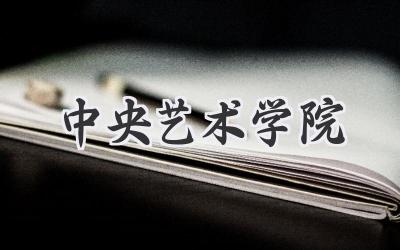 中央艺术学院